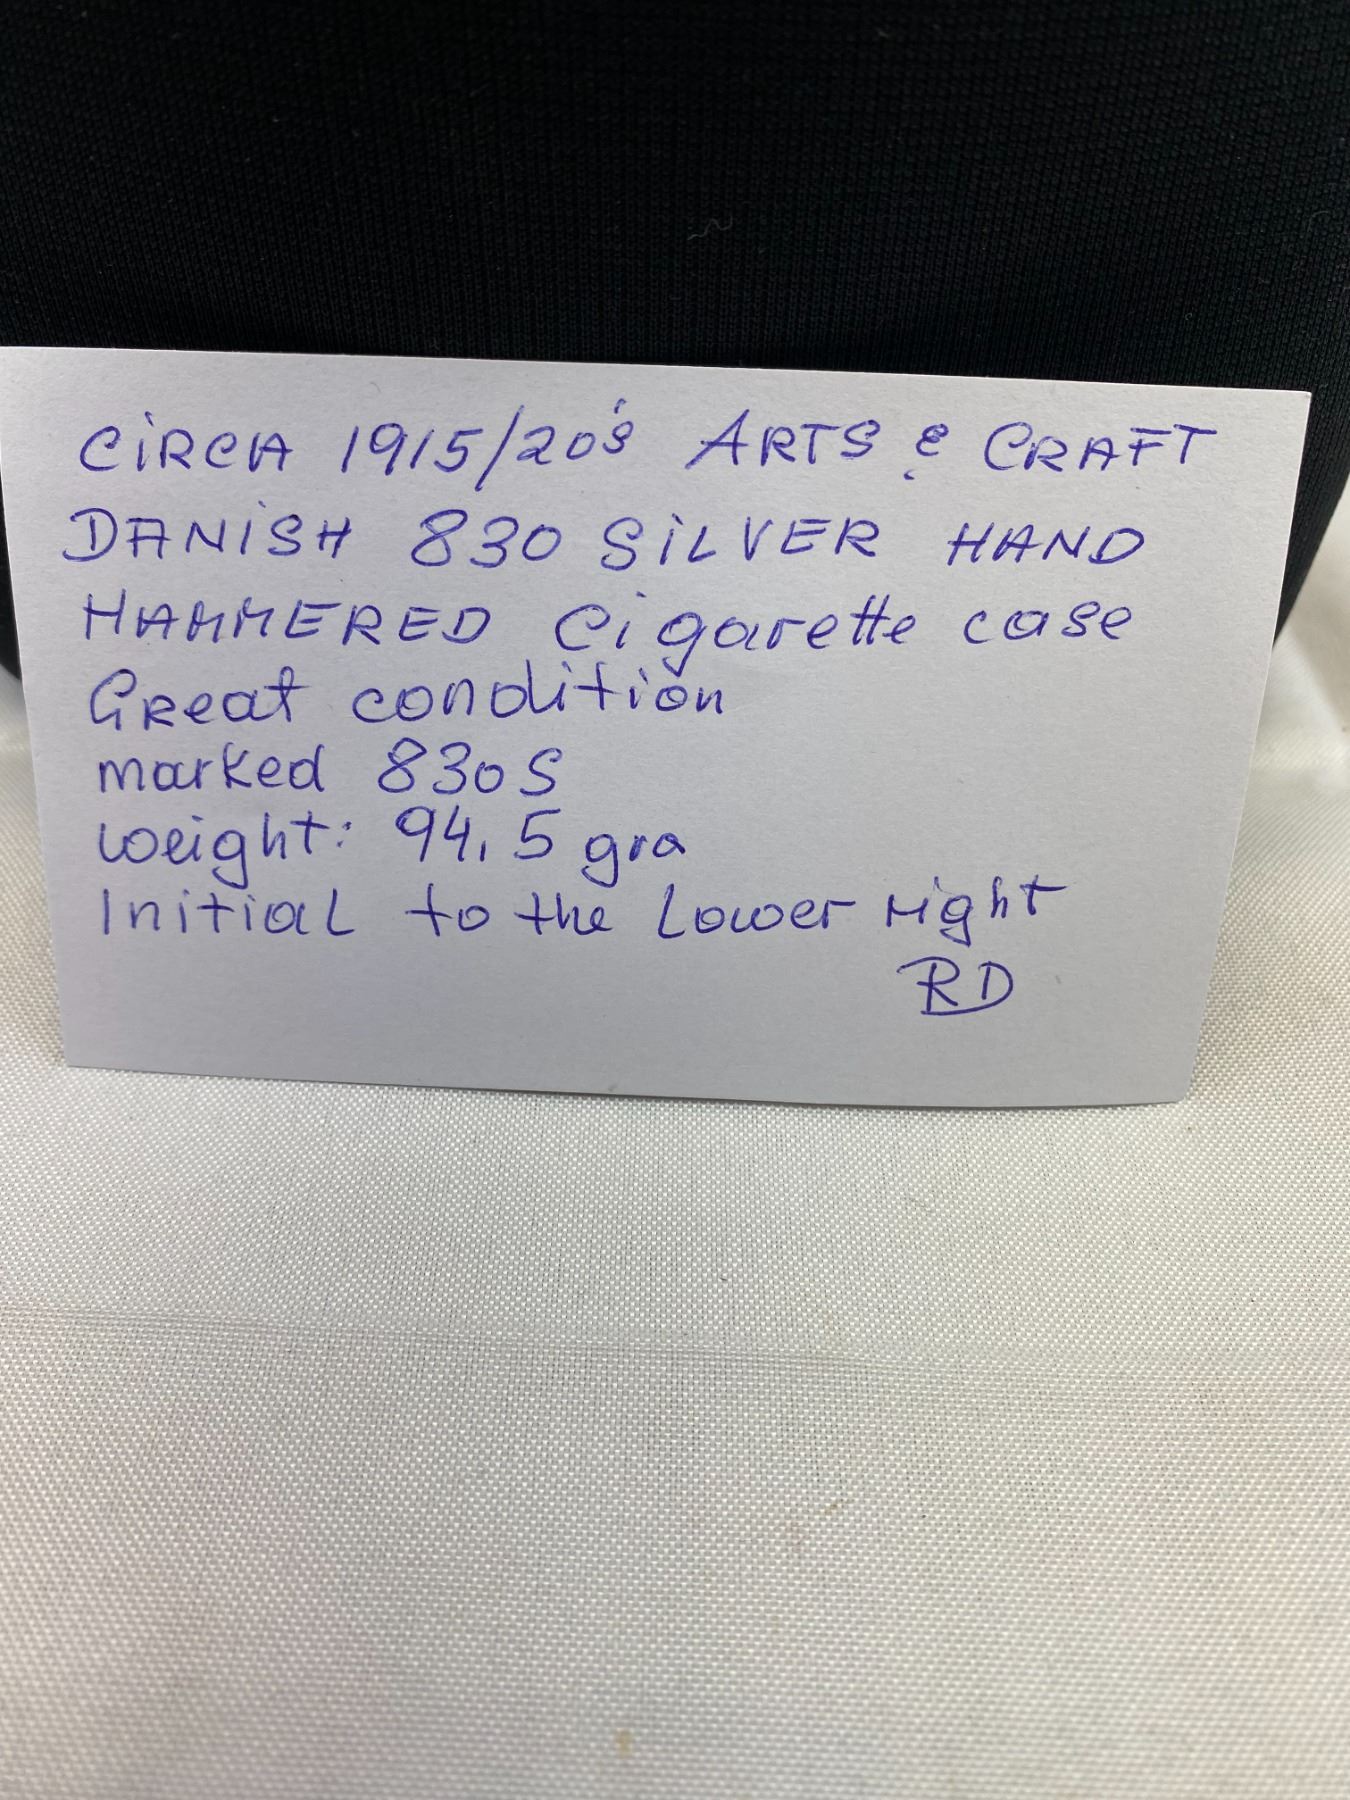 CiRCA 1915/20's ARTS & CRAFT
DANiSH 830 SiLVER HAND
HAMMERED Cigarette case
GReat condition
marked 830S
weight: 94,5 gra
Initial to the Lower right
RD